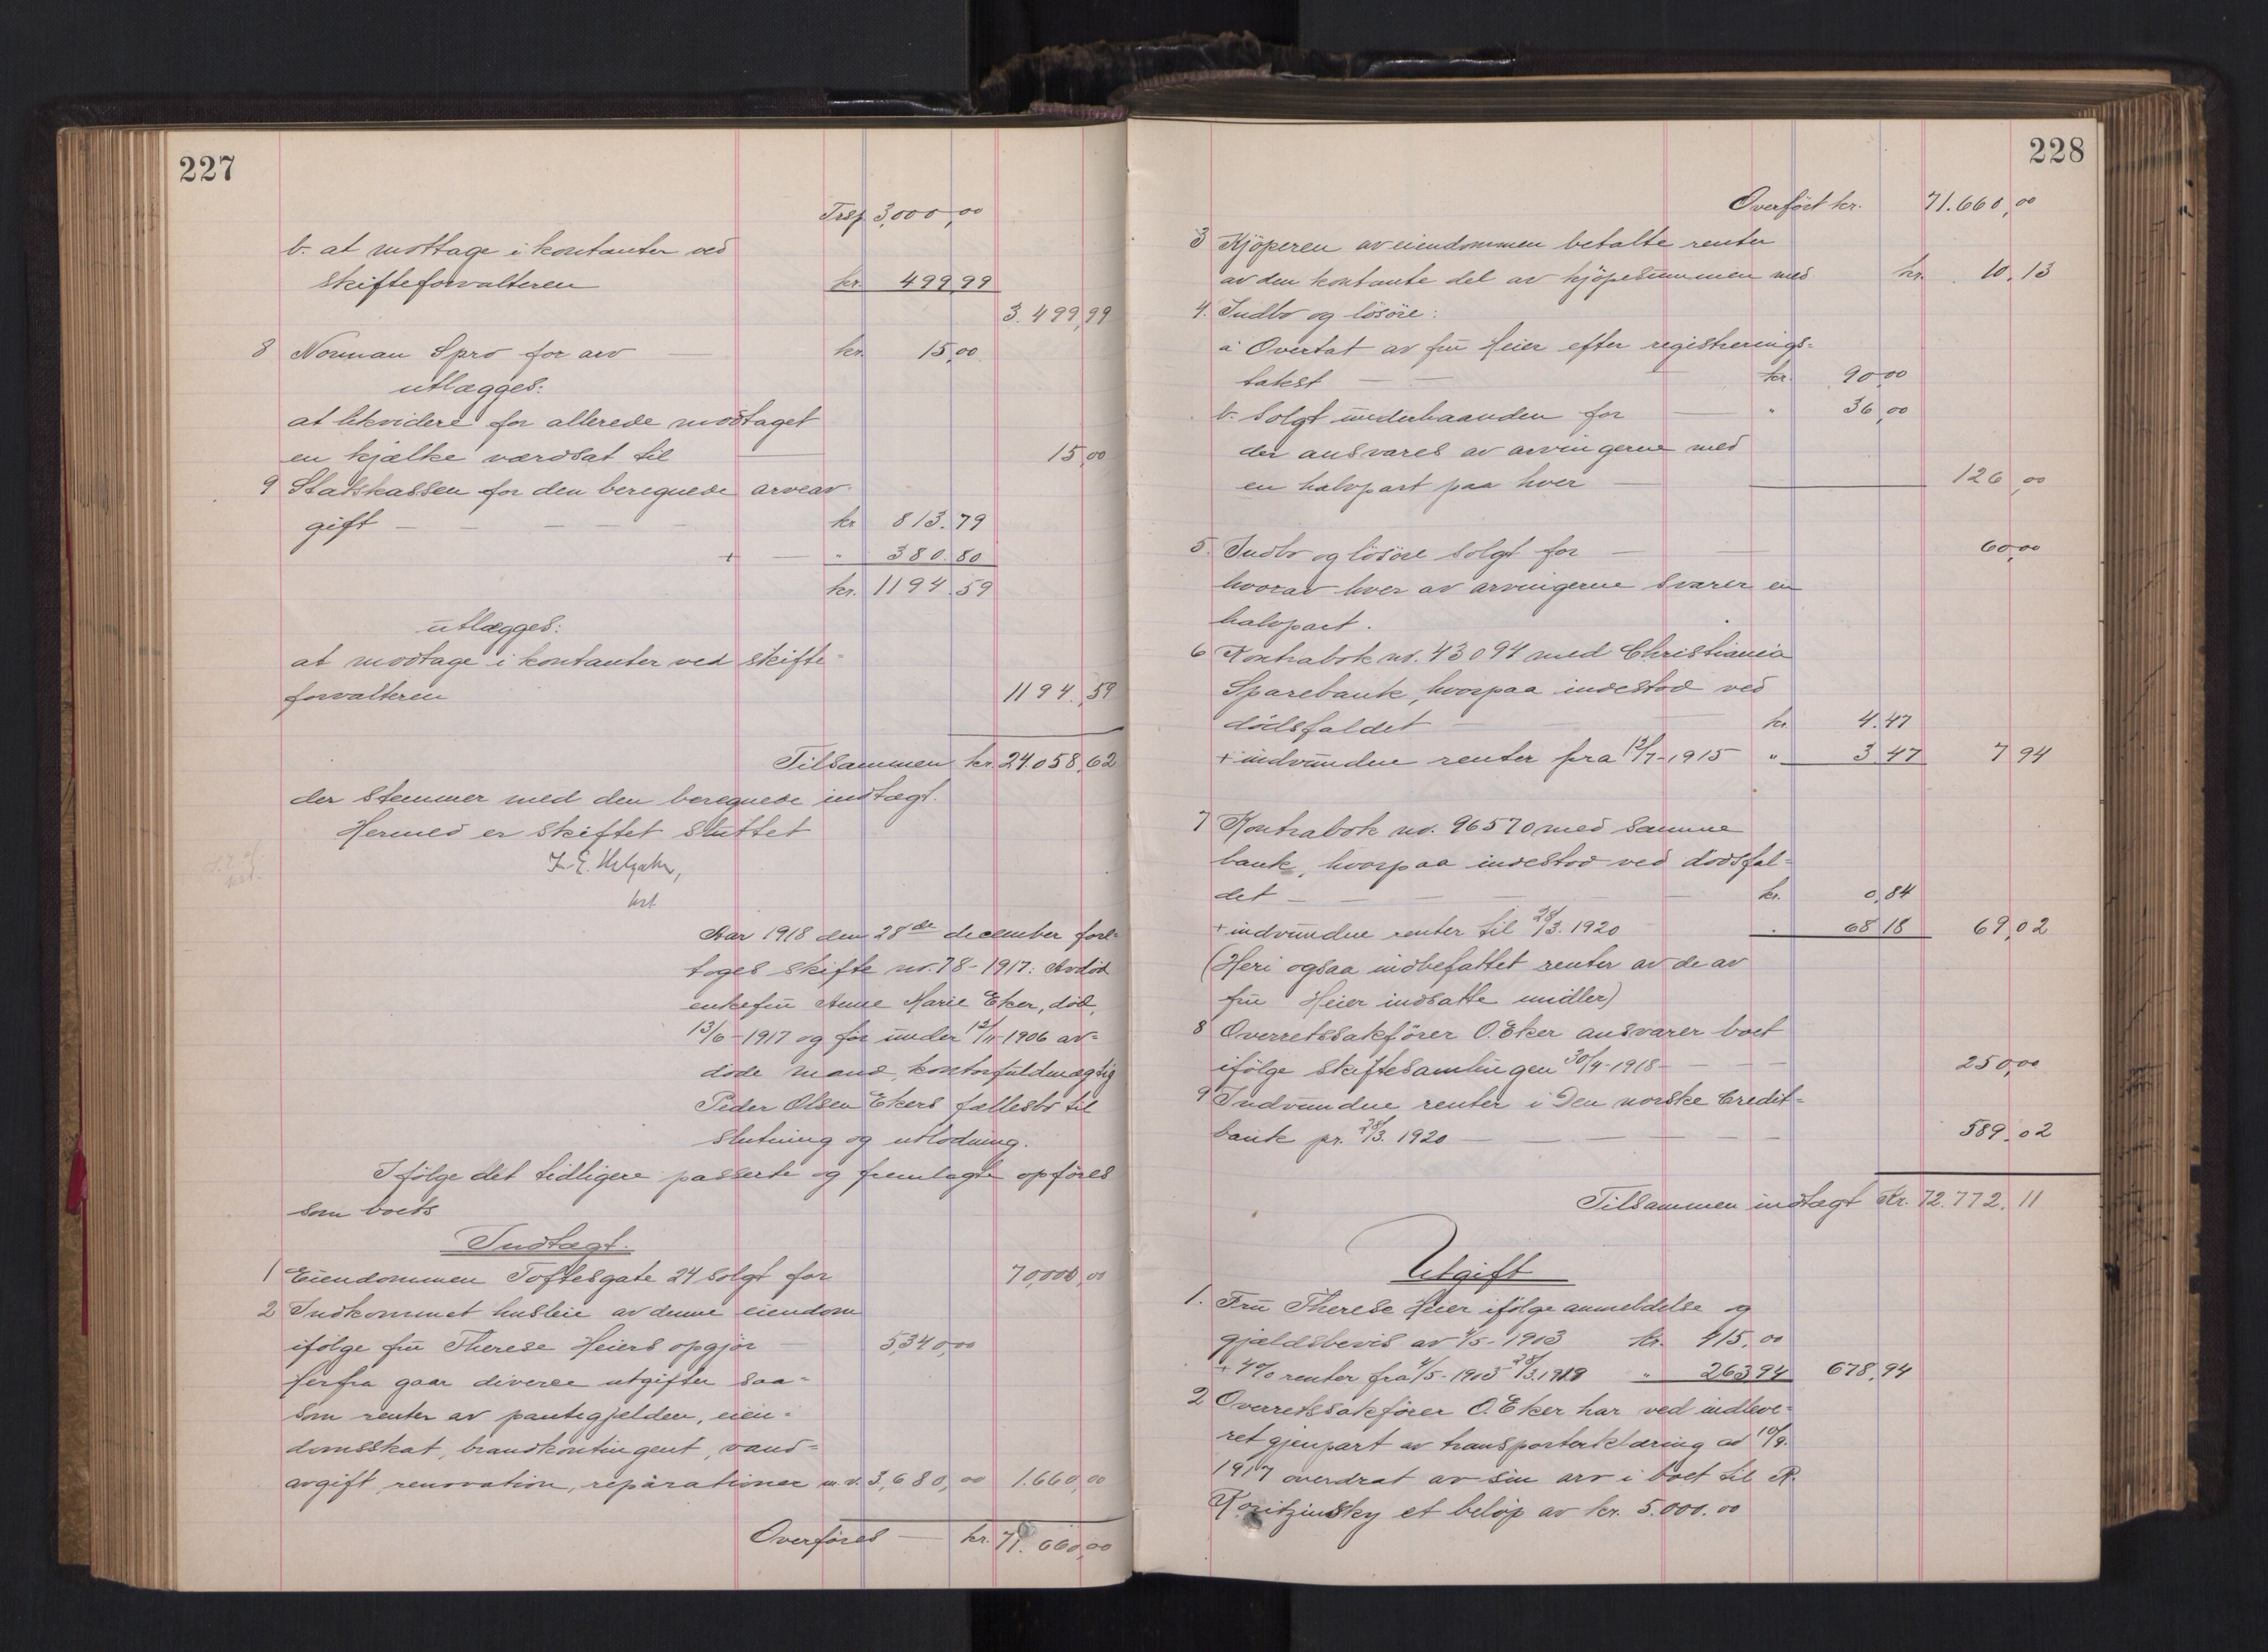 227
Trsp. 3,000,00
b. at mottage i kontanter ved
skifteforvalteren kr. 499,99
3.499,99
8 Norman Spro for arv — kr. 15,00
utlægges:
at likvidere for allerede modtaget
en kjælke værdsat til — 15,00
9 Statskassen for den beregnede arveav-
gift — — — — — kr 813.79
+ — " 380.80
kr. 1194.59
utlægges:
at modtage i kontanter ved skifte-
forvalteren 1194.,59
Tilsammen kr. 24.058,62
der stemmer med den beregnede indtægt.
Hermed er skiftet sluttet
Aar 1918 den 28de december fore-
toges skifte nr. 78-1917: Avdød
enkefru Anne Marie Eker, død,
13/6-1917 og før under 12/11-1906 av-
døde mand, kontorfuldmægtig
Peder Olsen Ekers fællesbo til
slutning og utlodning.
Ifølge det tidligere passerte og fremlagte opføres
som boets
Indtægt.
1 Eiendommen Toftesgate 24 solgt for 70,000,00
2 Indkommet husleie av denne eiendom
ifølge fru Therese Heiers opgjør — 5,340,00
Herfra gaar diverse utgifter saa-
som renter av pantegjelden, eien-
domsskat, brandkontingent, vand-
avgift renovation, reparationer m.v. 3,680,00 1.660,00
Overføres — kr. 71.660,00
228
Overført kr. 71.660,00
3 Kjøperen av eiendommen betalte renter
av den kontante del av kjøpesummen med kr. 10.13
4. Indbo og løsøre:
a Overtat av fru Heier efter registrerings-
takst — — — kr. 90,00
b. Solgt underhaanden for — " 36,00
der ansvares av arvingerne med
en halvpart paa hver — 126,00
5. Indbo og løsøre solgt for — — 60,00
hvorav hver av arvingerne svarer en
halvpart.
6 Kontrabok nr. 43094 med Christiania
Sparebank, hvorpaa indestod ved
dødsfaldet — — — kr. 4.47
+ indvundne renter fra 12/7-1915 " 3 47 7 94
7 Kontrabok nr. 96570 med samme
bank, hvorpaa indestod ved dødsfal-
det — — — — — kr. 0,84
+ indvundne renter til 28/3. 1920 " 68 18 69,02
(Heri ogsaa indbefattet renter av de av
fru Heier indsatte midler)
8 Overretssakfører O. Eker ansvarer boet
ifølge skiftesamlingen 30/4-1918 — — — 250,00
9 Indvundne renter i Den norske Credit-
bank pr. 28/3. 1920 — — — — — 589.02
Tilsammen indtægt Kr. 72.772.11
Utgift
1. Fru Therese Heier ifølge anmeldelse og
gjældsbevis av 4/5-1903 kr. 415.00
+ 4% renter fra 4/5-1903-28/3.1919 " 263 94 678,94
2 Overretssakfører O. Eker har ved indleve-
ret gjenpart av transporterklæring ad 10/9.
1917 overdrat av sin arv i boet til R.
Koritzinsky et beløp av kr. 5.000.00